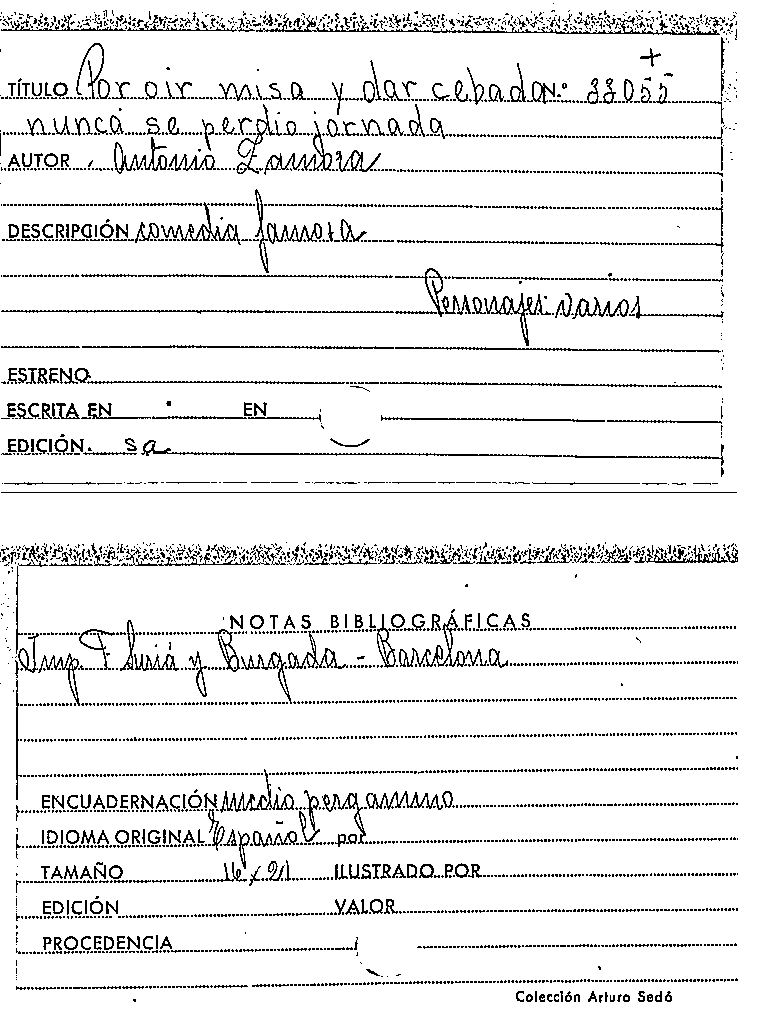 +
TÍTULO Por oir misa y dar cebada N.º 33055
nunca se perdio jornada
AUTOR Antonio Zamora
DESCRIPCIÓN comedia famosa
Personajes: varios
ESTRENO
ESCRITA EN EN
EDICIÓN. sa
NOTAS BIBLIOGRÁFICAS
Imp. F Suriá y Burgada - Barcelona
ENCUADERNACIÓN medio pergamino
IDIOMA ORIGINAL Español por
TAMAÑO 16 x 21 ILUSTRADO POR
EDICIÓN VALOR
PROCEDENCIA
Colección Arturo Sedó